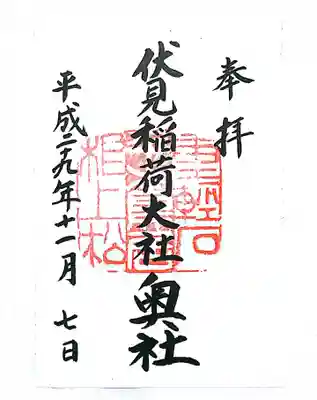 奉拝
伏見稲荷大社奥社
平成二十九年十一月七日